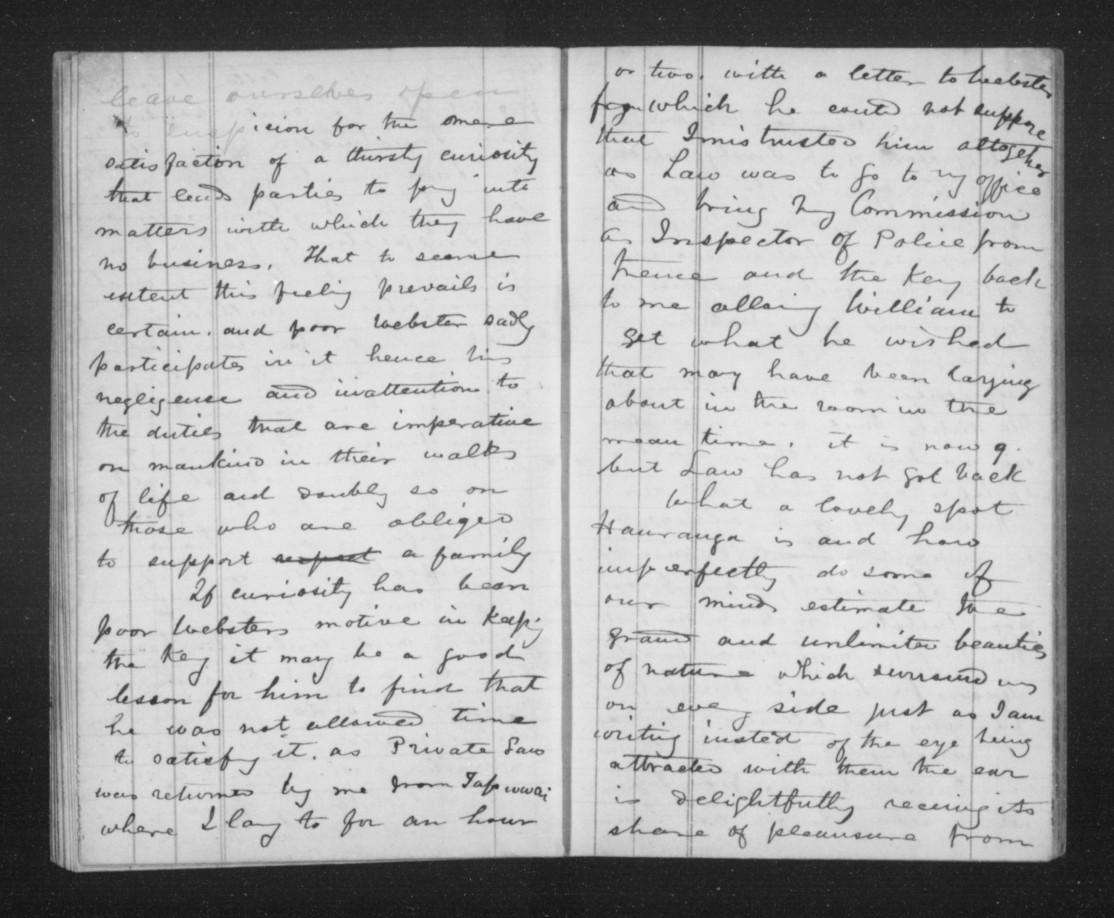 leave ourselves open
to suspicion for the mere
satisfaction of a thirsty curiosity
that leads parties to pry into
matters with which they have
no business. That to some
extent this feeling prevails is
certain. and poor Webster sadly
participates in it hence his
negligence and inattention to
the duties that are imperative
on mankind in their walks
of life and doubly so on
those who are obliged
to support respect a family
If curiosity has been
poor Websters motive in keeping
the key it may be a good
lesson for him to find that
he was not allowed time
to satisfy it. as Private Law
was returned by me from Tapuwai
where I lay to for an hour
or two. with a letter to Webster
from which he could not suppose
that I mistrusted him altogether
as Law was to go to my office
and bring my Commission
as Inspector of Police from
thence and the key back
to me allowing William to
get what he wished
that may have been laying
about in the room in the
mean time. it is now 9.
but Law has not got back
What a lovely spot
Hauranga is and how
imperfectly do some of
our minds estimate the
grand and unlimited beauties
of nature which surround us
on every side just as I am
writing insted of the eye being
attracted with them the ear
is delightfully receiving its
share of pleausure from